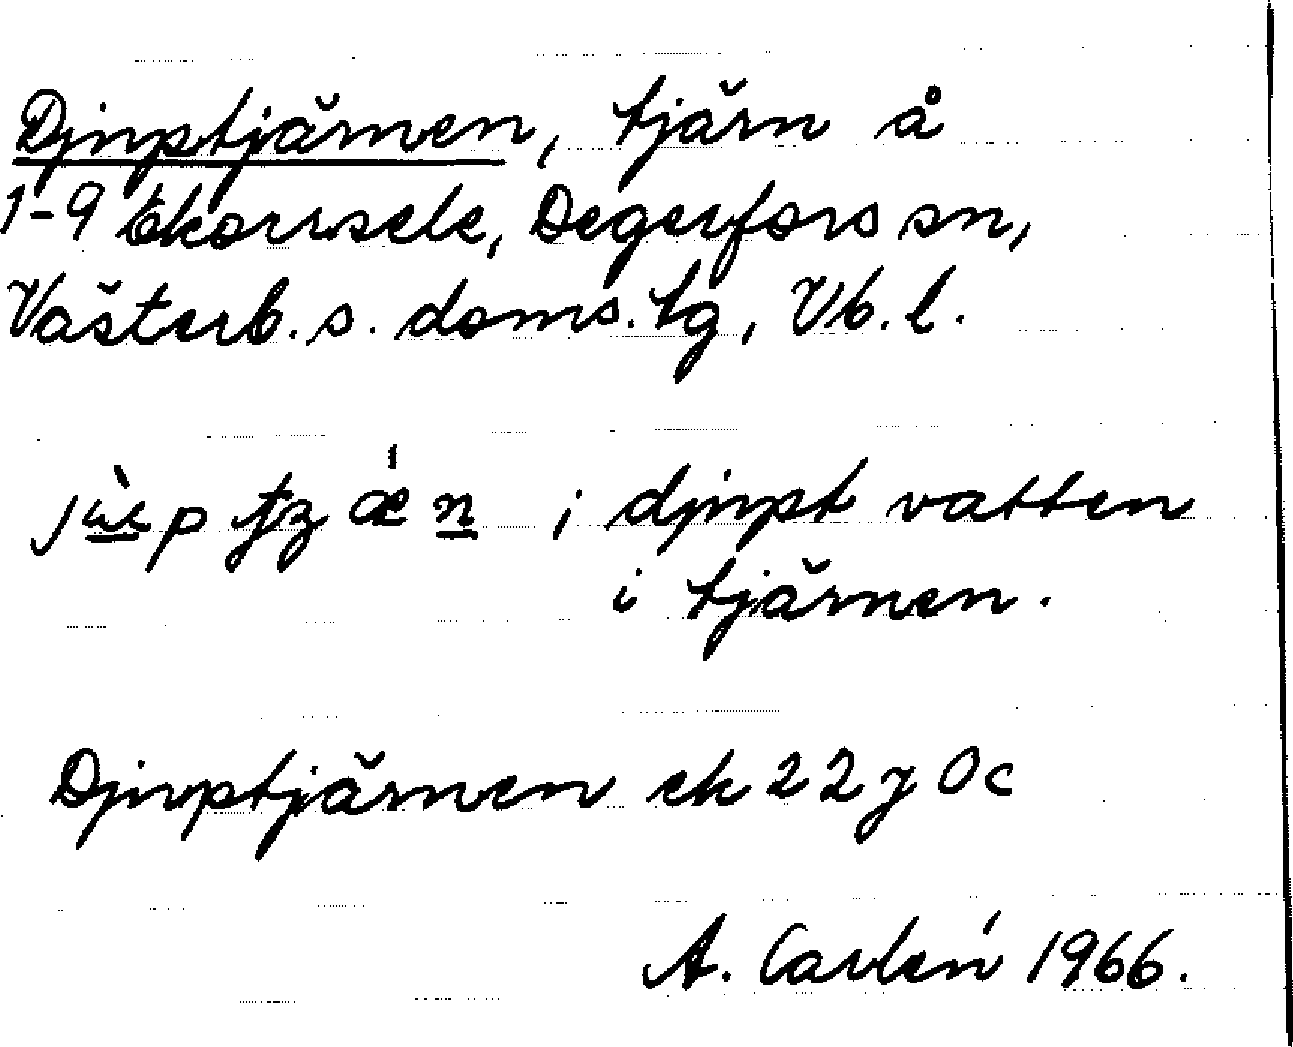 Djuptjärnen, tjärn å
1-9 Ekorrsele, Degerfors sn,
Västerb. s. doms. tg, Vb. l.
; djupt vatten
i tjärnen.
Djuptjärnen ek 22 j 0 c
A. Carlén 1966.